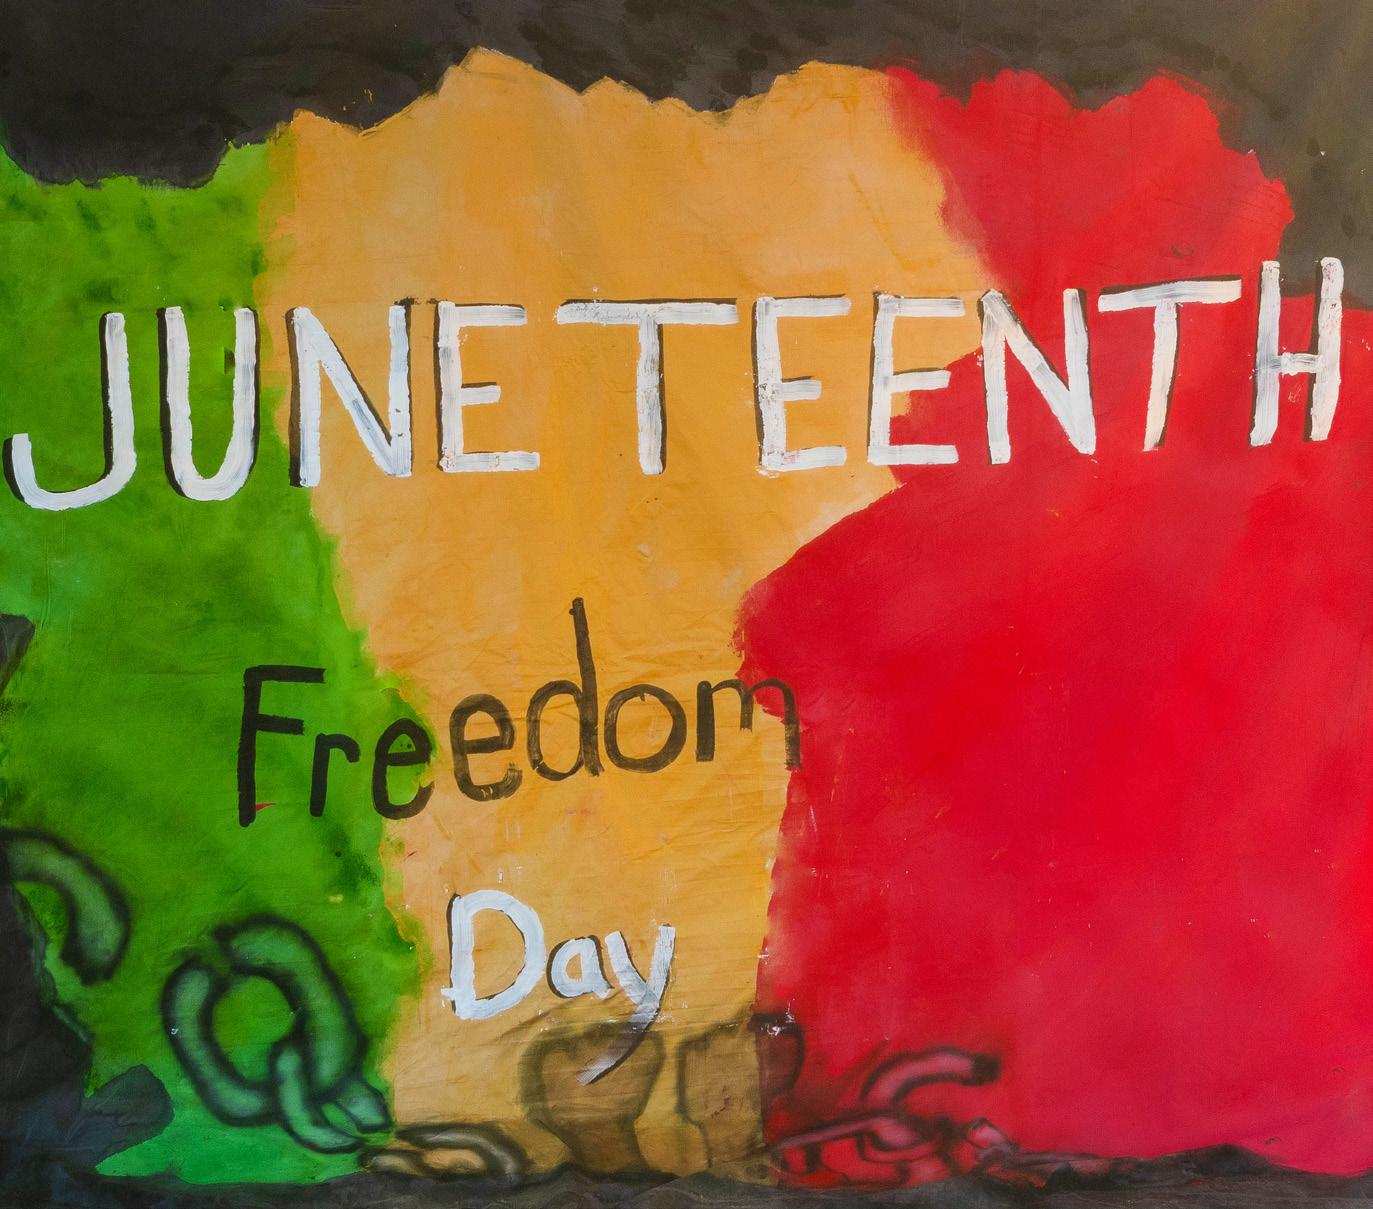 JUNETEENTH
Freedom
Day